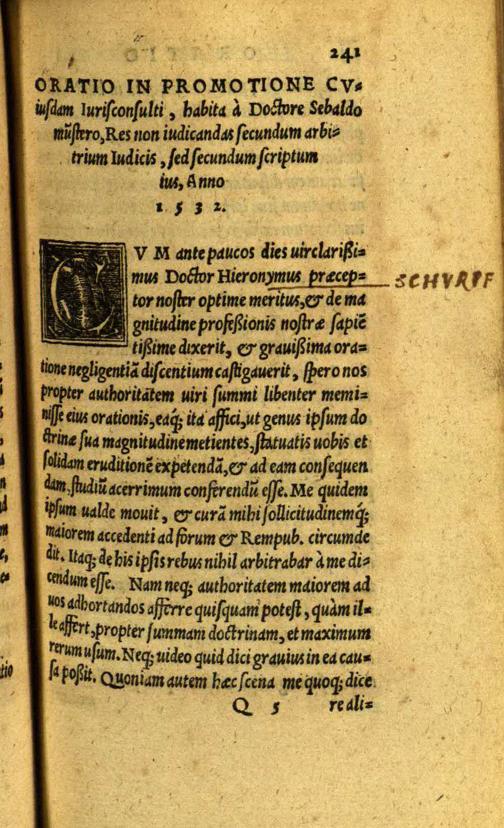 241
ORATIO IN PROMOTIONE CV⸗
iusdam Iurisconsulti, habita à Doctore Sebaldo
mũstero, Res non iudicandas secundum arbi⸗
trium Iudicis, sed secundum scriptum
ius, Anno
1 5 3 2.
CVM ante paucos dies uir clarißi⸗
mus Doctor Hieronymus præcep⸗ SCHVRPF
tor noster optime meritus, & de ma
gnitudine profeßionis nostræ sapiẽ
tißime dixerit, & grauißima ora⸗
tione negligentiã discentium castigauerit, spero nos
propter authoritatem uiri summi libenter memi⸗
nisse eius orationis, eaq; ita affici, ut genus ipsum do
ctrinæ sua magnitudine metientes, statuatis uobis et
solidam eruditionẽ expetendã, & ad eam consequen
dam, studiũ acerrimum conferendũ esse. Me quidem
ipsum ualde mouit, & curã mihi sollicitudinemq́;
maiorem accedenti ad forum & Rempub. circumde
dit. Itaq; de his ipsis rebus nihil arbitrabar à me di⸗
cendum esse. Nam neq; authoritatem maiorem ad
uos adhortandos afferre quisquam potest, quàm il⸗
le affert, propter summam doctrinam, et maximum
rerum usum. Neq; uideo quid dici grauius in ea cau⸗
sa poßit. Quoniam autem hæc scena me quoq; dice
Q 5 re ali⸗